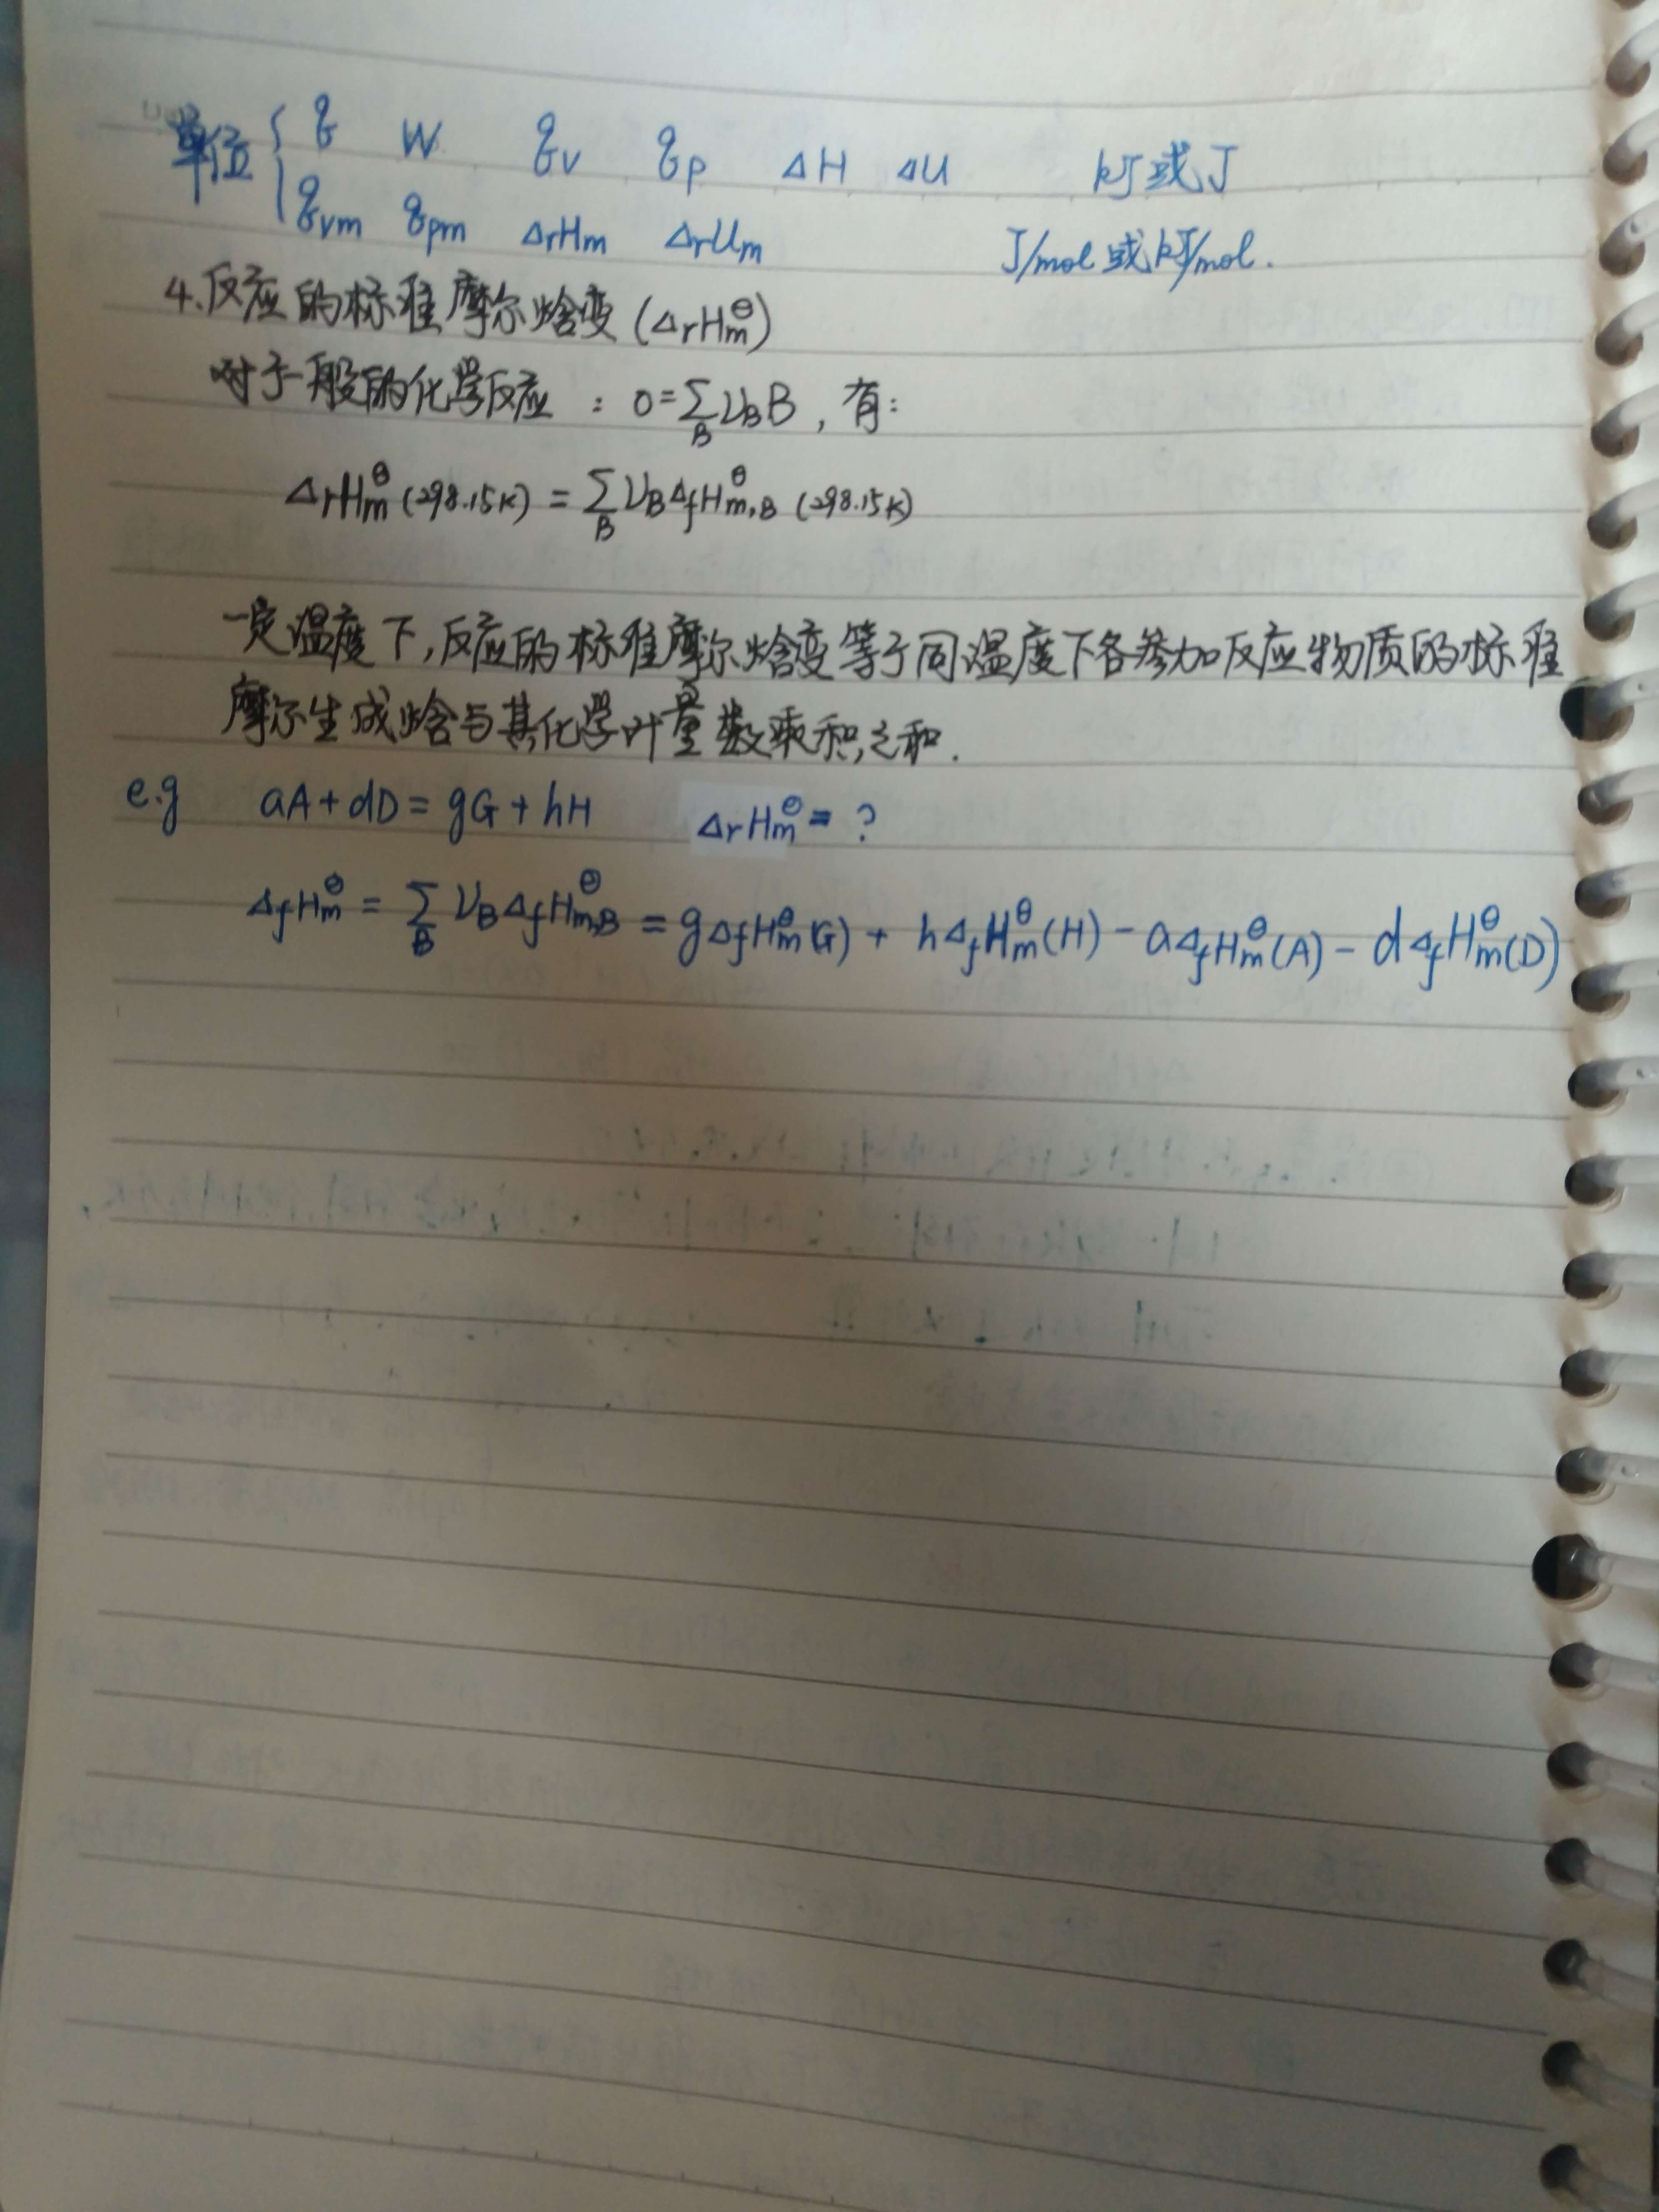 单位 { q W qv qp ΔH ΔU kJ或J
qvm qpm ΔrHm ΔrUm J/mol或kJ/mol.
4.反应的标准摩尔焓变(ΔrHm^θ)
对于一般的化学反应:0=∑_B νB B,有:
ΔrHm^θ(298.15K)=∑_B νBΔfHm,B^θ(298.15K)
一定温度下,反应的标准摩尔焓变等于同温度下各参加反应物质的标准
摩尔生成焓与其化学计量数乘积之和.
e.g aA+dD=gG+hH ΔrHm^θ=?
ΔfHm^θ=∑_B νBΔfHm,B^θ=gΔfHm^θ(G)+hΔfHm^θ(H)-aΔfHm^θ(A)-dΔfHm^θ(D)